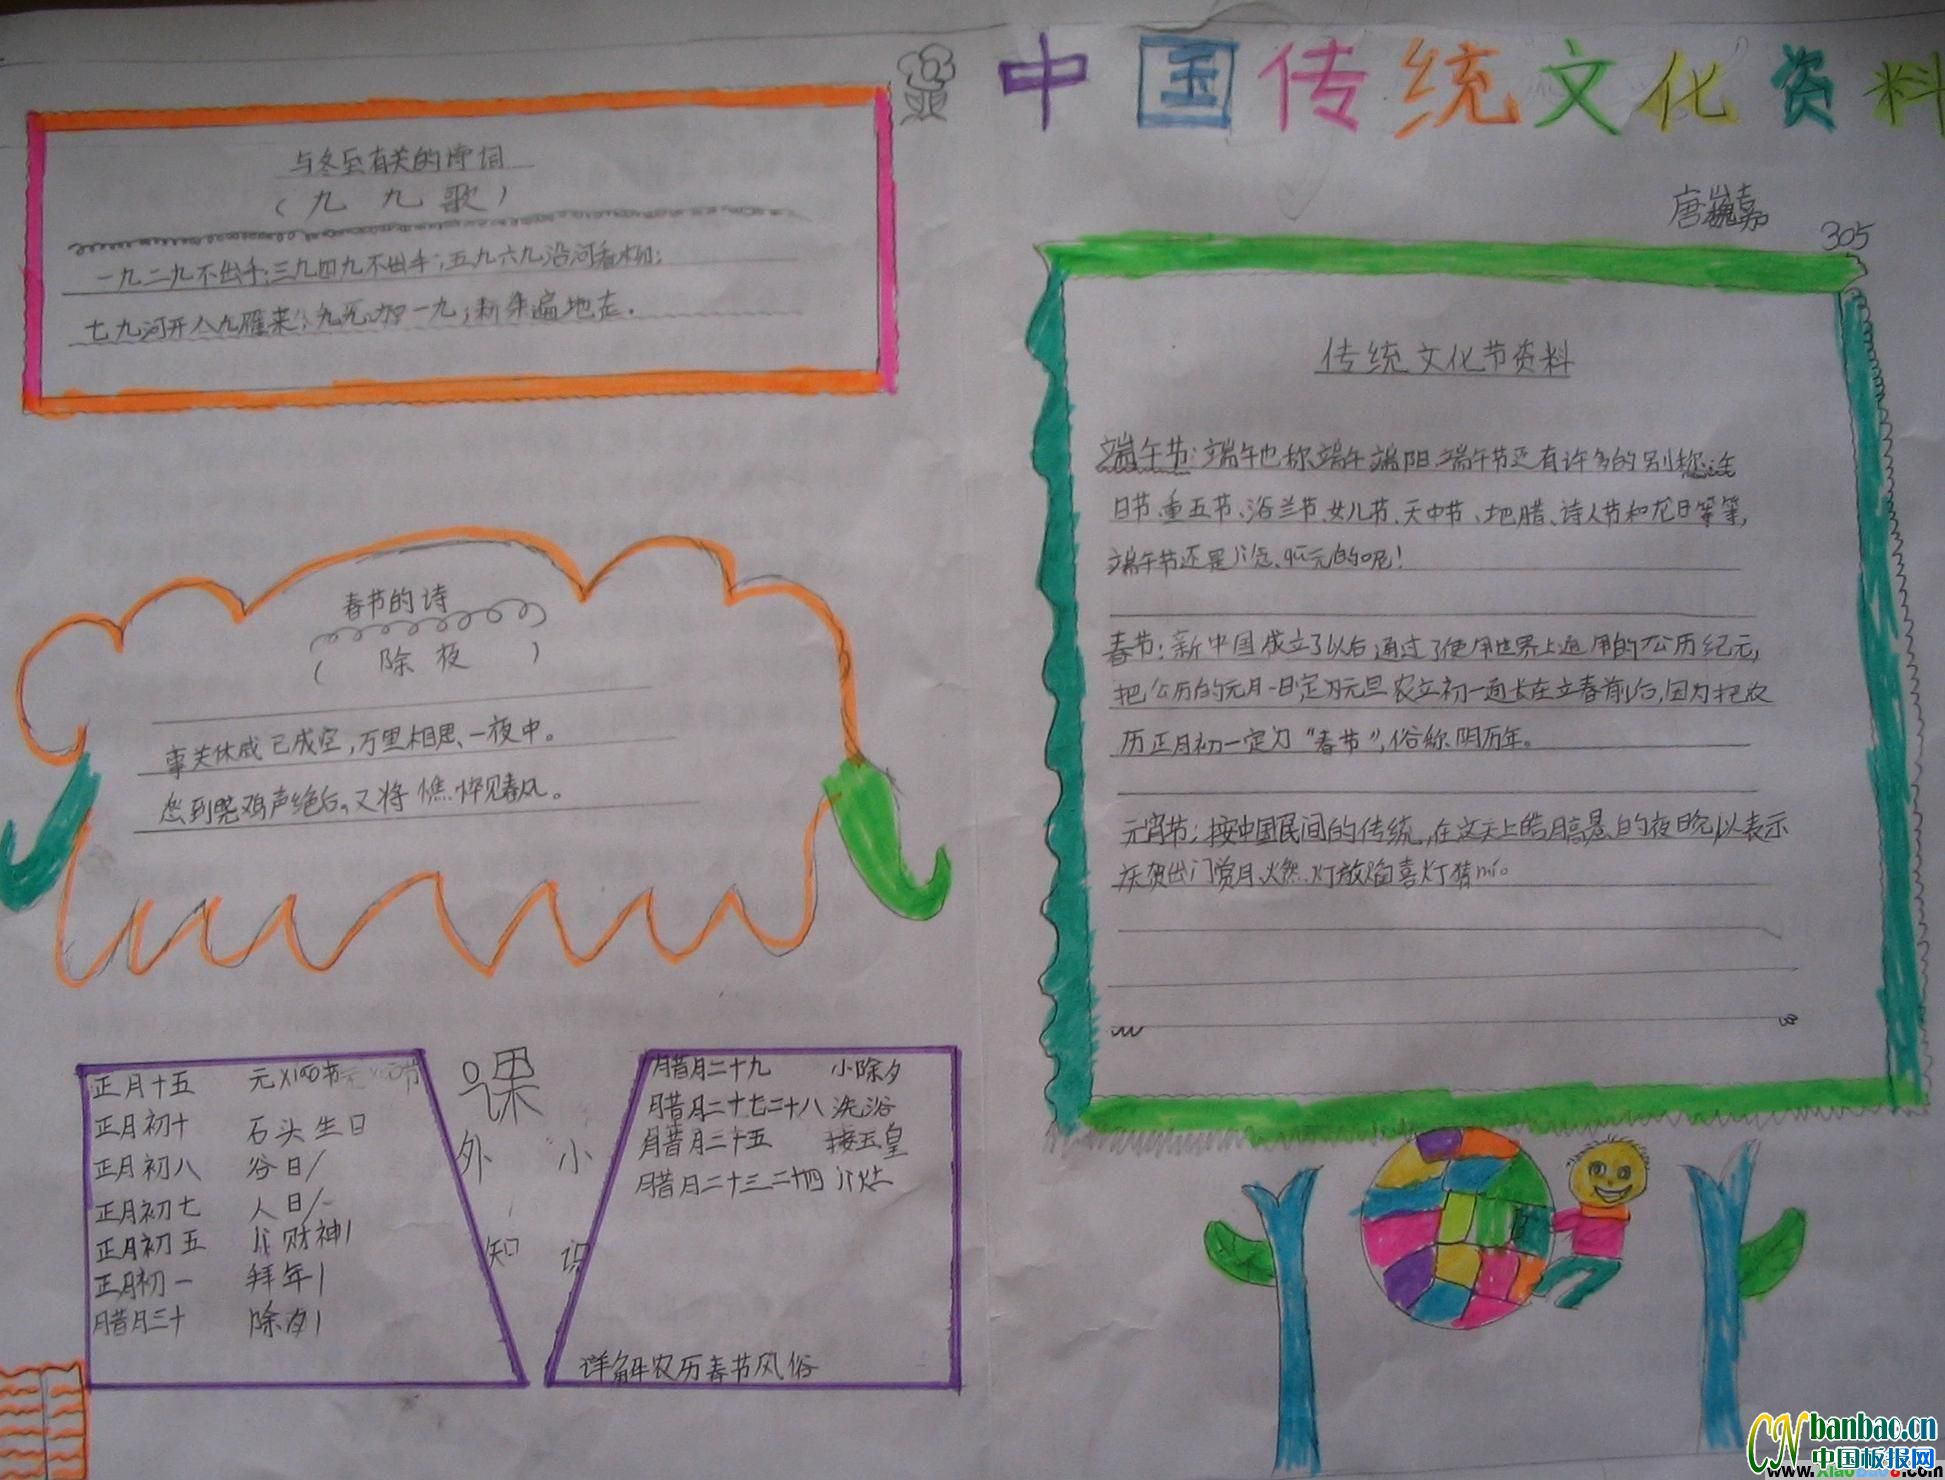 中国传统文化资料
唐巍嘉
305
与冬至有关的诗词
(九九歌)
一九二九不出手;三九四九不出手;五九六九沿河看柳;
七九河开八九雁来;九九加一九;耕牛遍地走.
春节的诗
(除夜)
事关休戚已成空,万里相思、一夜中。
愁到晓鸡声绝后,又将憔悴见春风。
传统文化节资料
端午节:端午也称端午端阳端午节还有许多的别称
日节、重五节、浴兰节、女儿节、天中节、地腊、诗人节和龙日等等,
端午节还是
春节:新中国成立了以后通过了使用世界上通用的公历纪元,
把公历的元月一日定为元旦农立初一通长在立春前后,因为把农
历正月初一定为“春节”,俗称阴历年。
元宵节:按中国民间的传统,在这天上皓月高悬的夜晚以表示
庆贺出门赏月、燃灯放焰喜灯猜mí。
课外小知识
正月十五 元xiāo节
正月初十 石头生日
正月初八 谷日
正月初七 人日
正月初五 财神
正月初一 拜年
腊月三十 除夕
腊月二十九 小除夕
腊月二十七二十八 洗浴
腊月二十五 接玉皇
腊月二十三二十四
详解农历春节风俗
CN banbao.cn
中国板报网